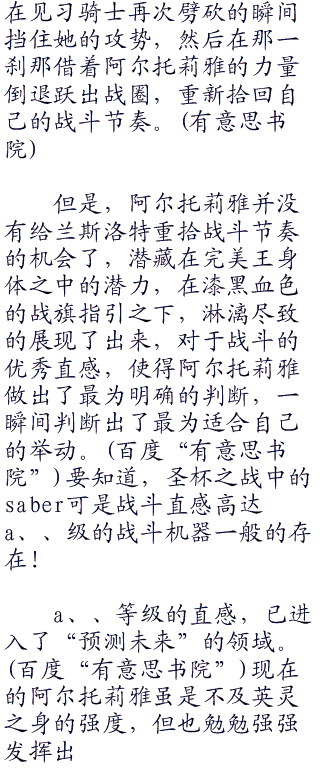 在见习骑士再次劈砍的瞬间
挡住她的攻势，然后在那一
刹那借着阿尔托莉雅的力量
倒退跃出战圈，重新拾回自
己的战斗节奏。(有意思书
院)
但是，阿尔托莉雅并没
有给兰斯洛特重拾战斗节奏
的机会了，潜藏在完美王身
体之中的潜力，在漆黑血色
的战旗指引之下，淋漓尽致
的展现了出来，对于战斗的
优秀直感，使得阿尔托莉雅
做出了最为明确的判断，一
瞬间判断出了最为适合自己
的举动。(百度“有意思书
院”)要知道，圣杯之战中的
saber可是战斗直感高达
a、、级的战斗机器一般的存
在！
a、、等级的直感，已进
入了“预测未来”的领域。
(百度“有意思书院”)现在
的阿尔托莉雅虽是不及英灵
之身的强度，但也勉勉强强
发挥出